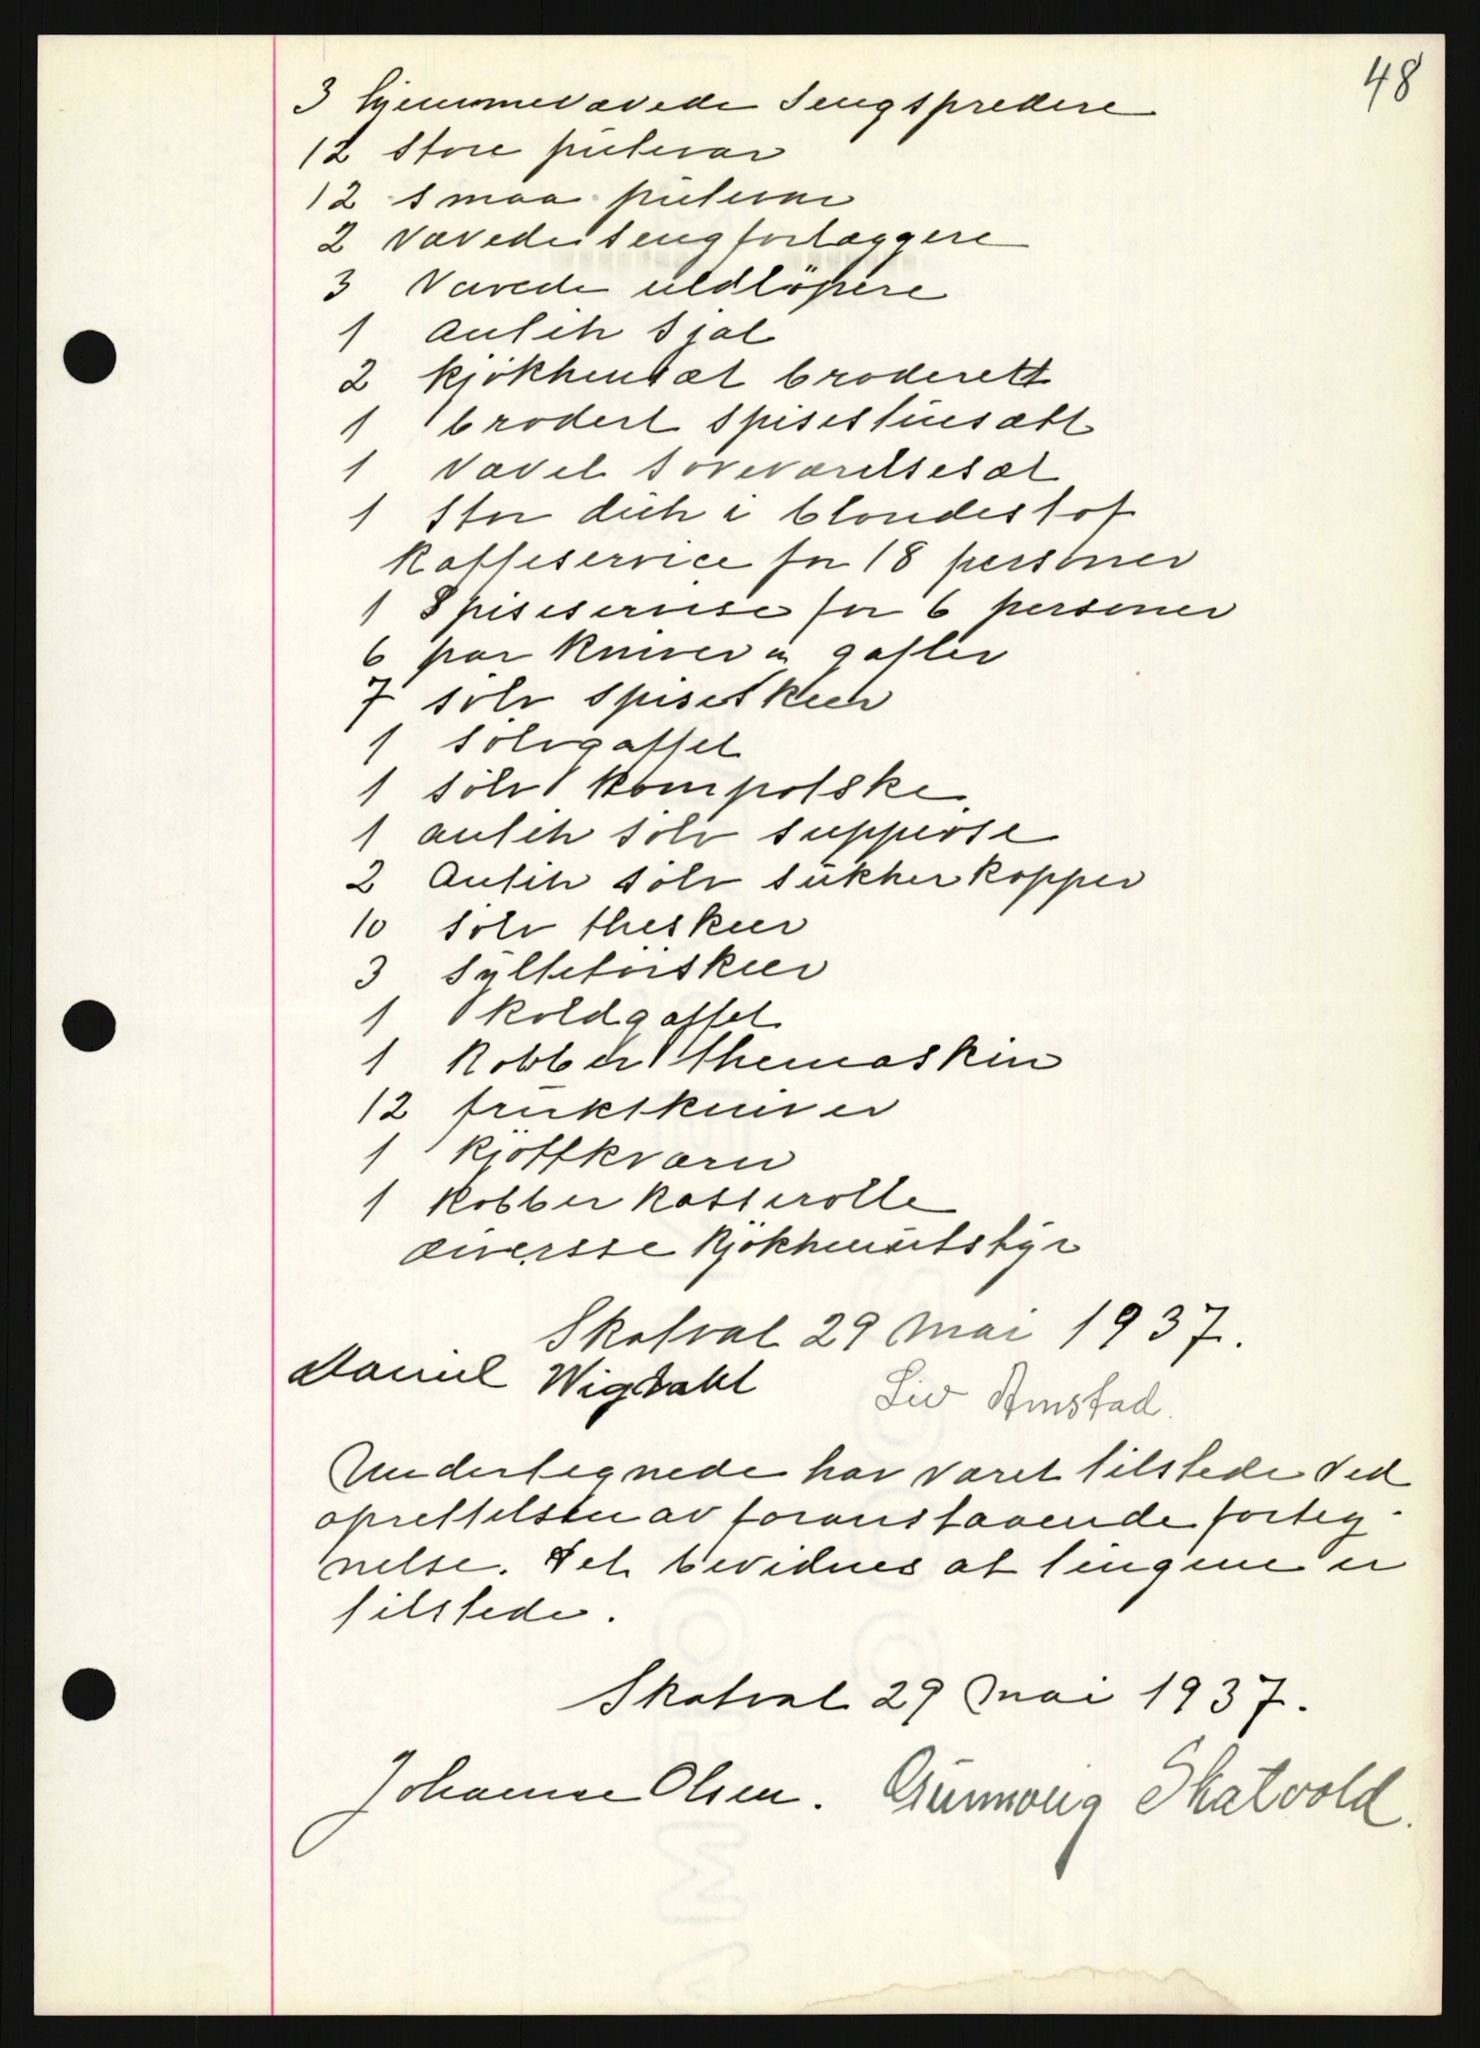 48
3 hjemmevævede Sengspredere
12 store putevar
12 smaa putevar
2 vævede sengforlæggere
3 Vævede uldlöpere
1 antik sjal
2 kjökkensæt broderett
1 brodert spisestuesætt
1 vævet soveværelsesæt
1 stor duk i blondestof
Kaffeservice for 18 personer
1 Spiseservise for 6 personer
6 par kniver og gafler
7 sölv spiseskeer
1 sölvgaffel
1 sölv kompotske
1 antik sölv suppeöse
2 Antik sölv sukkerkopper
10 sölv theskeer
3 syltetöiskeer
1 koldgaffel
1 Kobber themaskin
12 fruktkniver
1 kjöttkværn
1 Kobber kasserolle
diversse kjökkenutstyr
Skatval 29 mai 1937.
Daniel Wigdahl Liv Arnstad.
Undertegnede har været tilstede ved
oprettelsen av foranstaaende forteg-
nelse. Det bevidnes at tingene er
tilstede.
Skatval 29 mai 1937.
Johanna Olsen. Gunvorig Skatvold.